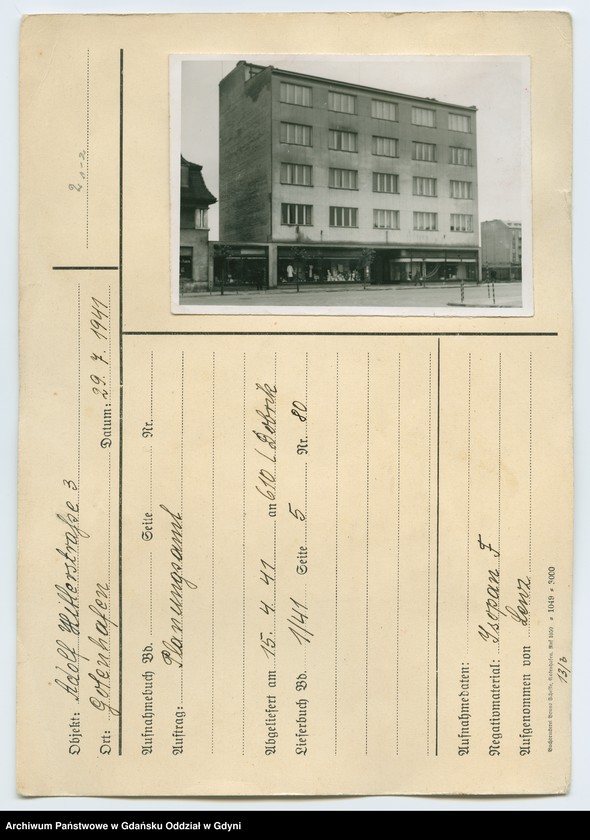 2 1-2
Objekt: Adolf Hitlerstraße 3
Ort: Gotenhafen Datum: 29. 7. 1941
Aufnahmebuch Bd. Seite Nr.
Auftrag: Planungsamt
Abgeliefert am 15. 4. 41 an 610
Lieferbuch Bd. 1/41 Seite 5 Nr. 80
Aufnahmedaten:
Negativmaterial: Isopan F
Aufgenommen von Lenz
1049 * 5000
13/6
Archiwum Państwowe w Gdańsku Oddział w Gdyni